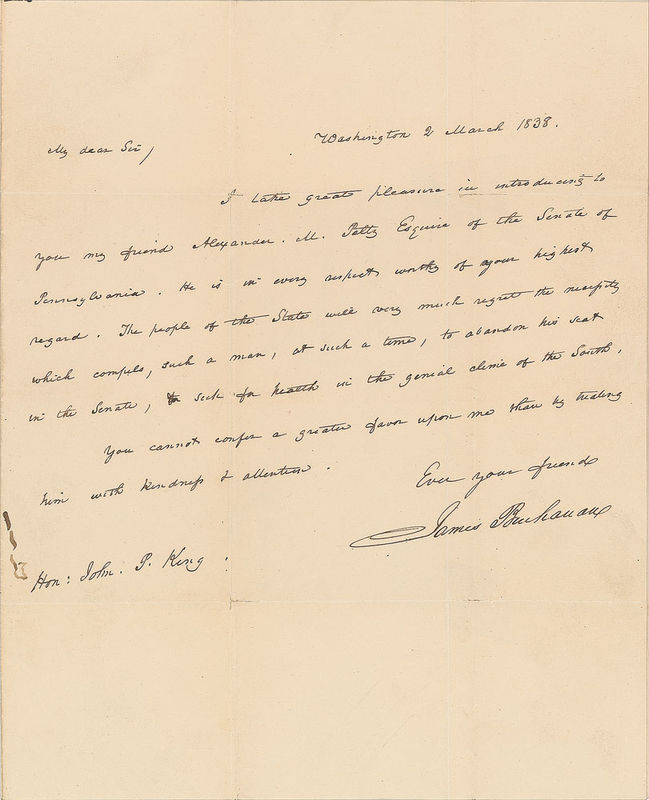 Washington 2 March 1838.
My dear Sir,
I take great pleasure in introducing to
you my friend Alexander. M. Peltz Esquire of the Senate of
Pennsylvania. He is in every respect worthy of your highest
regard. The people of the State will very much regret the necessity
which compels, such a man, at such a time, to abandon his seat
in the Senate, to seek for health in the genial clime of the South.
You cannot confer a greater favor upon me than by treating
him with kindness & attention.
Ever your friend
James Buchanan
Hon: John. P. King.